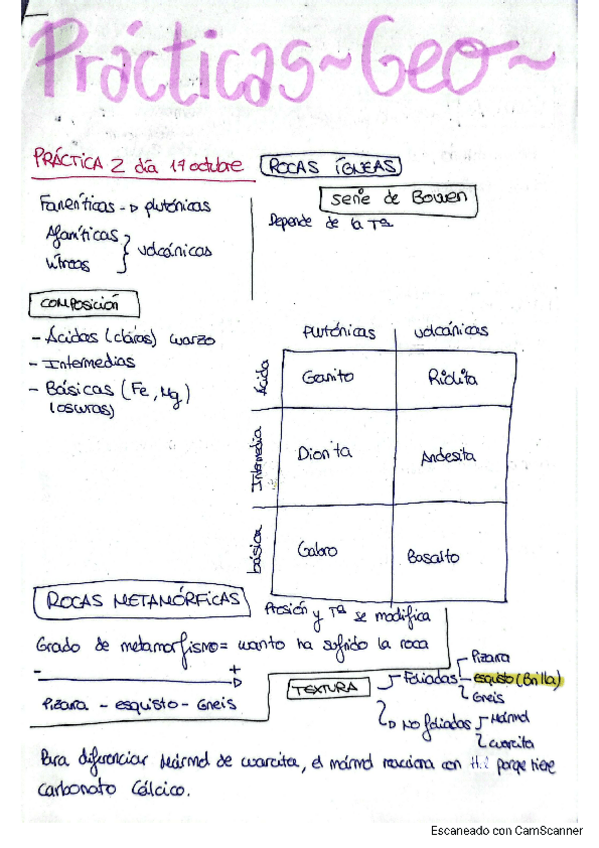 Prácticas~Geo~
PRÁCTICA 2 día 17 octubre
ROCAS ÍGNEAS
Serie de Bowen
Depende de la Tª
Faneríticas -> plutónicas
Afaníticas
Vítreas
volcánicas
COMPOSICIÓN
- Ácidas (claras) cuarzo
- Intermedias
- Básicas (Fe, Mg)
(oscuras)
plutónicas volcánicas
Ácida Granito Riolita
Intermedia Diorita Andesita
básica Gabro Basalto
ROCAS METAMÓRFICAS
Presión y Tª se modifica
Grado de metamorfismo = cuanto ha sufrido la roca
- +
Pizarra - esquisto - Gneis
TEXTURA
Foliadas
Pizarra
esquisto (Brilla)
Gneis
No foliadas
Mármol
cuarcita
Para diferenciar Mármol de cuarcita, el mármol reacciona con porque tiene
carbonato Cálcico.
Escaneado con CamScanner